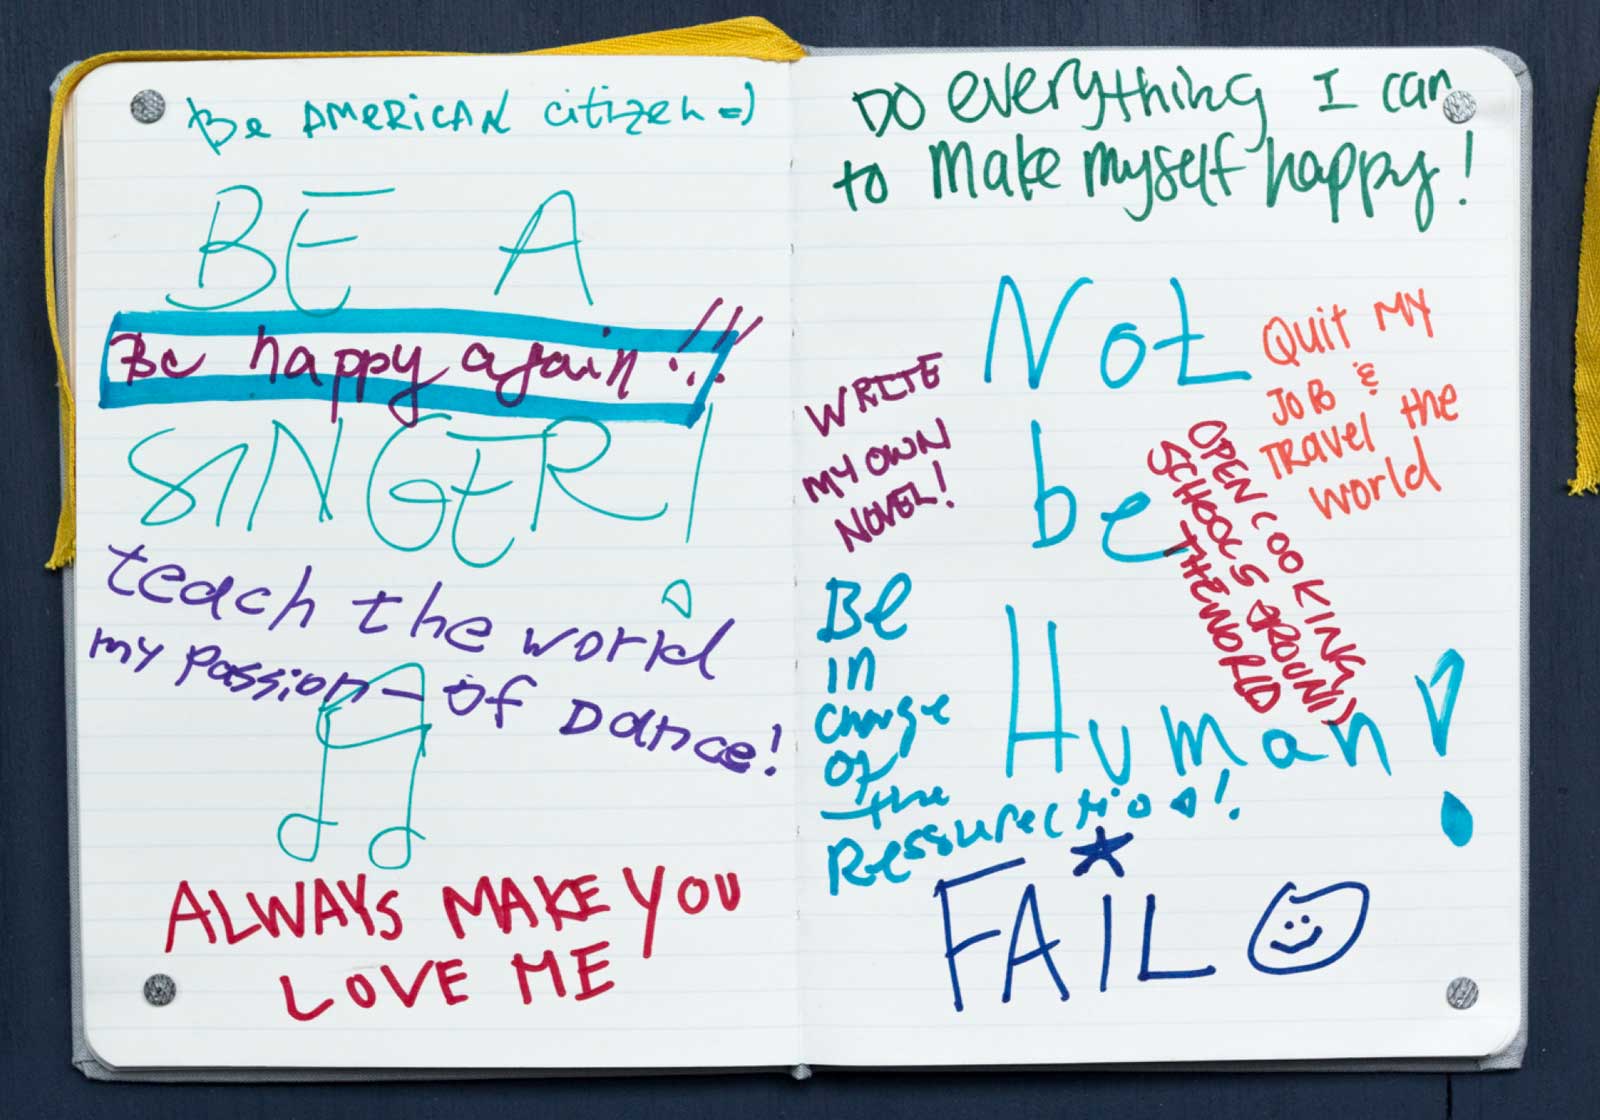 Be AMERICAN citizen =)
BE A
Be happy again!!!
SINGER!
teach the world
my passion - of Dance!
ALWAYS MAKE YOU
LOVE ME
DO everything I can
to Make myself happy!
Not
be
Human!
QUIT MY
JOB &
TRAVEL the
World
WRITE
MY OWN
NOVEL!
OPEN COOKING
SCHOOLS AROUND
THE WORLD
BE
in
Charge
Of
the
Ressurection!
FAIL